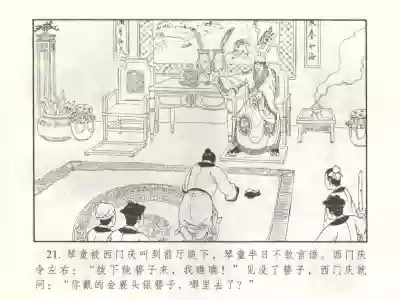 21. 琴童被西门庆叫到前厅跪下，琴童半日不敢言语。西门庆
令左右：“拨下他簪子来，我瞧瞧！”见没了簪子，西门庆就
问：“你戴的金裹头银簪子，哪里去了？”